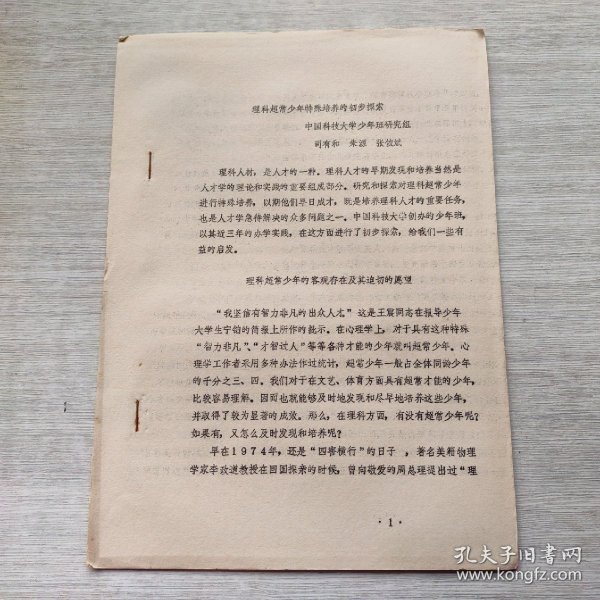 理科超常少年特殊培养的初步探索
中国科技大学少年班研究组
司有和 朱源 张俊斌
理科人材，是人才的一种。理科人才的早期发现和培养当然是
人才学的理论和实践的重要组成部分。研究和探索对理科超常少年
进行特殊培养，以期他们早日成才，既是培养理科人才的重要任务，
也是人才学急待解决的众多问题之一。中国科技大学创办的少年班，
以其近三年的办学实践，在这方面进行了初步探索，给我们一些有
益的启发。
理科超常少年的客观存在及其迫切的愿望
“我坚信有智力非凡的出众人才”这是王震同志在报导少年
大学生宁铂的简报上所作的批示。在心理学上，对于具有这种特殊
“智力非凡”、“才智过人”等等各种才能的少年就叫超常少年。心
理学工作者采用多种办法作过统计，超常少年一般占全体同龄少年
的千分之三、四。我们对于在文艺、体育方面具有超常才能的少年，
比较容易理解。因而也就能够及时地发现和尽早地培养这些少年，
并取得了较为显著的成效。那么，在理科方面，有没有超常少年呢？
如果有，又怎么及时发现和培养呢？
早在1974年，还是“四害横行”的日子，著名美籍物理
学家李政道教授在回国探亲的时候，曾向敬爱的周总理提出过“理
·1·
孔夫子旧书网
www.kongfz.com